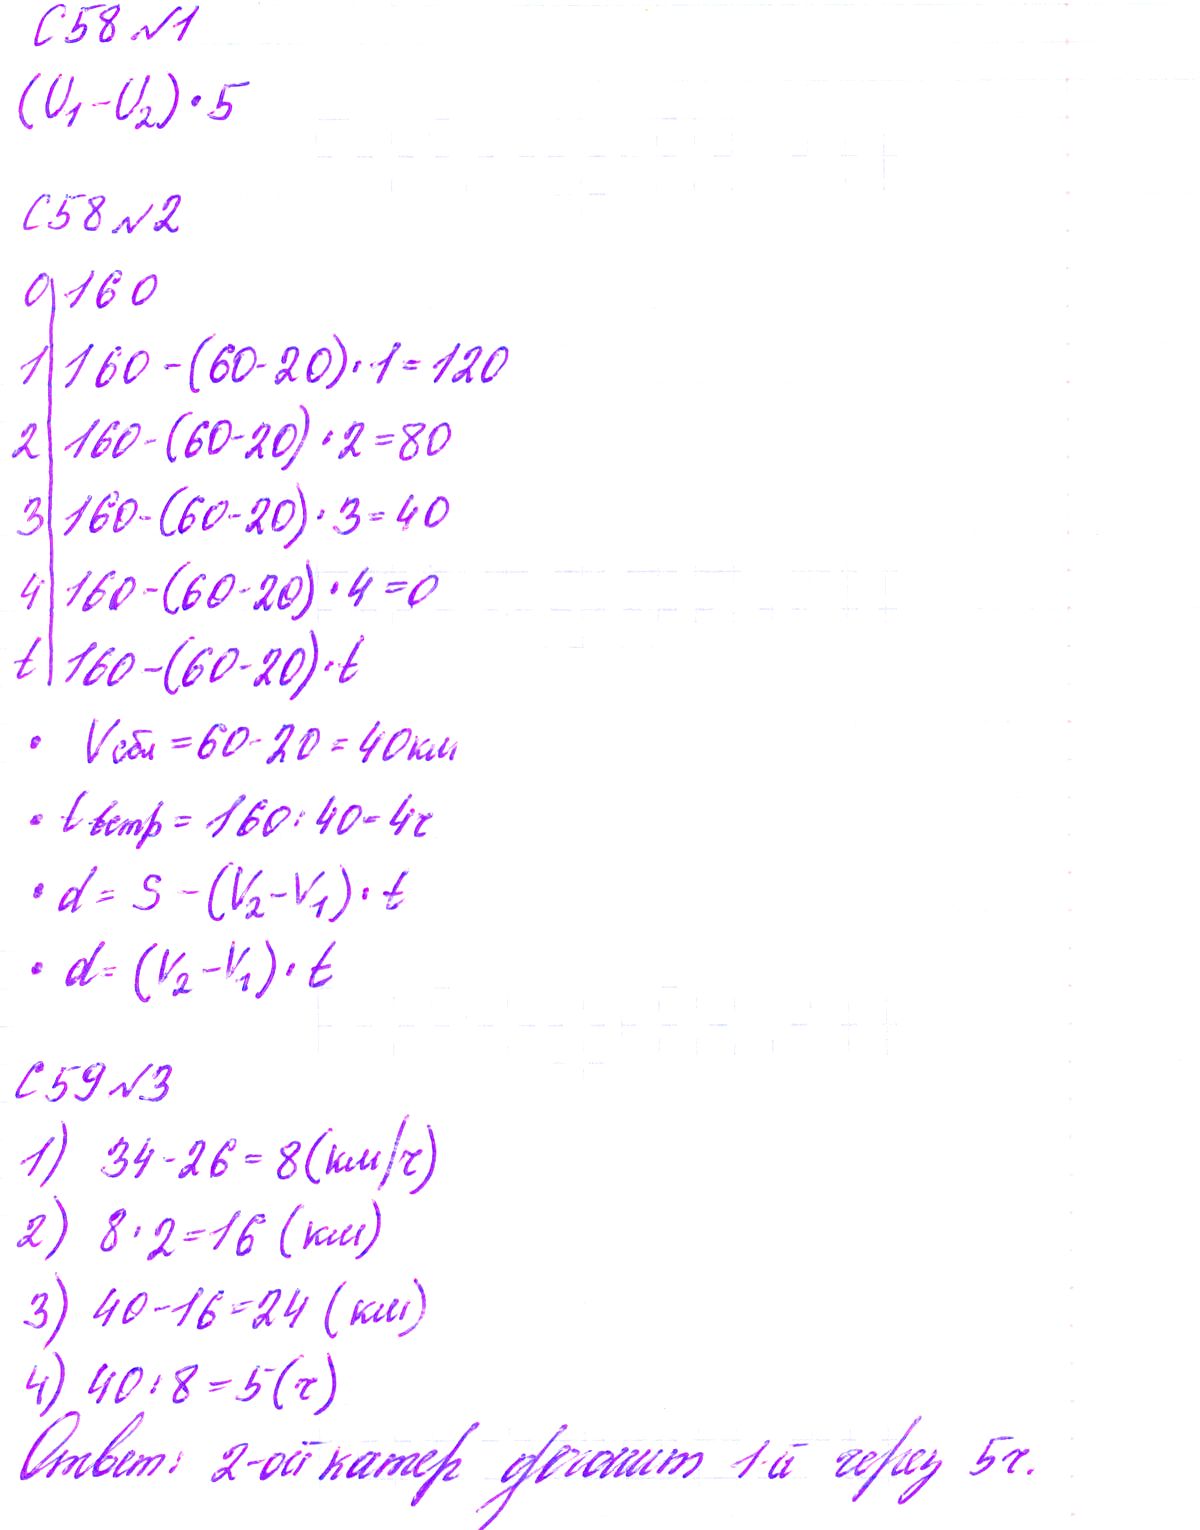 С58 №1
(V₁-V₂)·5
С58 №2
0 | 160
1 | 160-(60-20)·1=120
2 | 160-(60-20)·2=80
3 | 160-(60-20)·3=40
4 | 160-(60-20)·4=0
t | 160-(60-20)·t
• Vсбл=60-20=40км
• tвстр=160:40=4ч
• d=S-(V₂-V₁)·t
• d=(V₂-V₁)·t
С59 №3
1) 34-26=8(км/ч)
2) 8·2=16(км)
3) 40-16=24(км)
4) 40:8=5(ч)
Ответ: 2-ой катер догонит 1-й через 5ч.